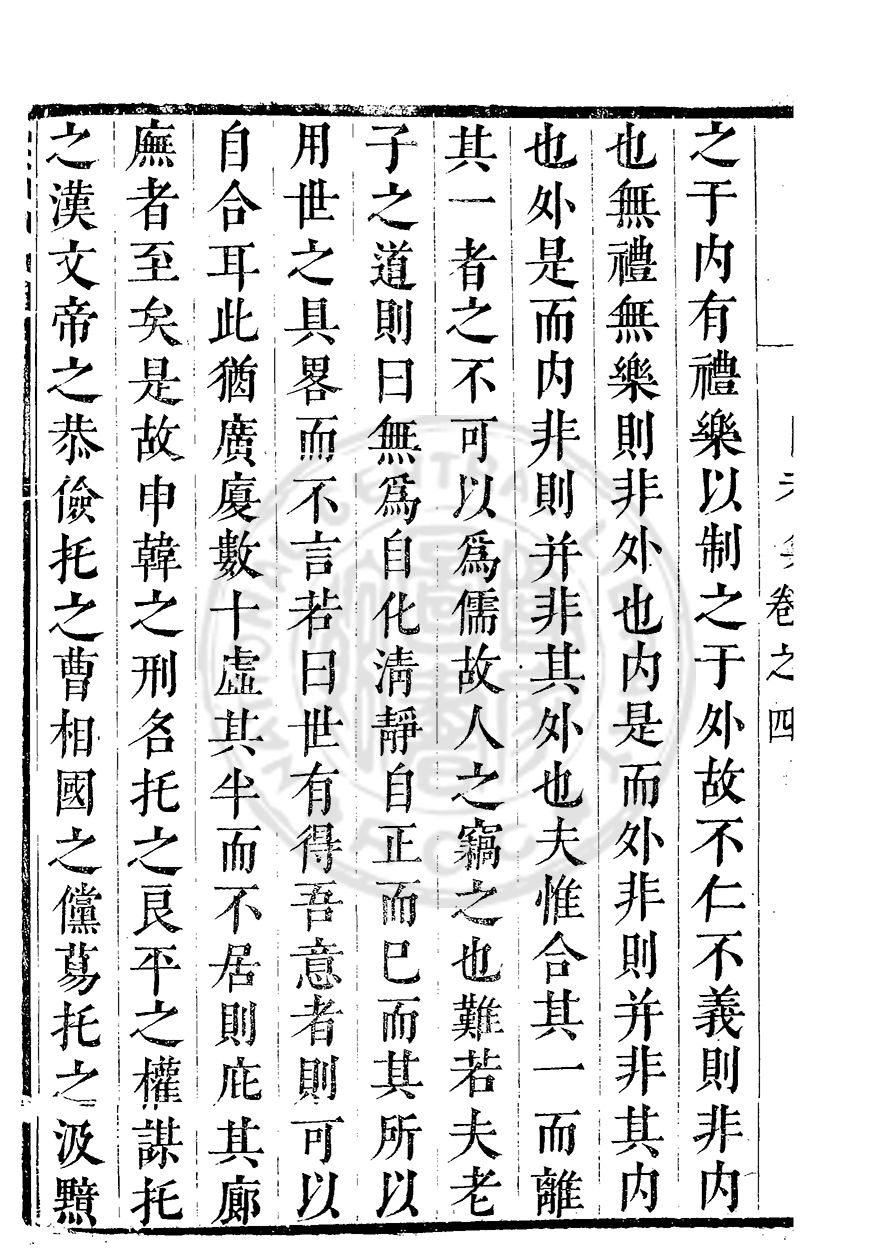 卷之四
之于内有禮樂以制之于外故不仁不義則非内
也無禮無樂則非外也内是而外非則并非其内
也外是而内非則并非其外也夫惟合其一而離
其一者之不可以爲儒故人之竊之也難若夫老
子之道則曰無爲自化淸靜自正而巳而其所以
用世之具畧而不言若曰世有得吾意者則可以
自合耳此猶廣廈數十虛其半而不居則庇其廊
廡者至矣是故申韓之刑名托之良平之權謀托
之漢文帝之恭儉托之曹相國之儻蕩托之汲黯